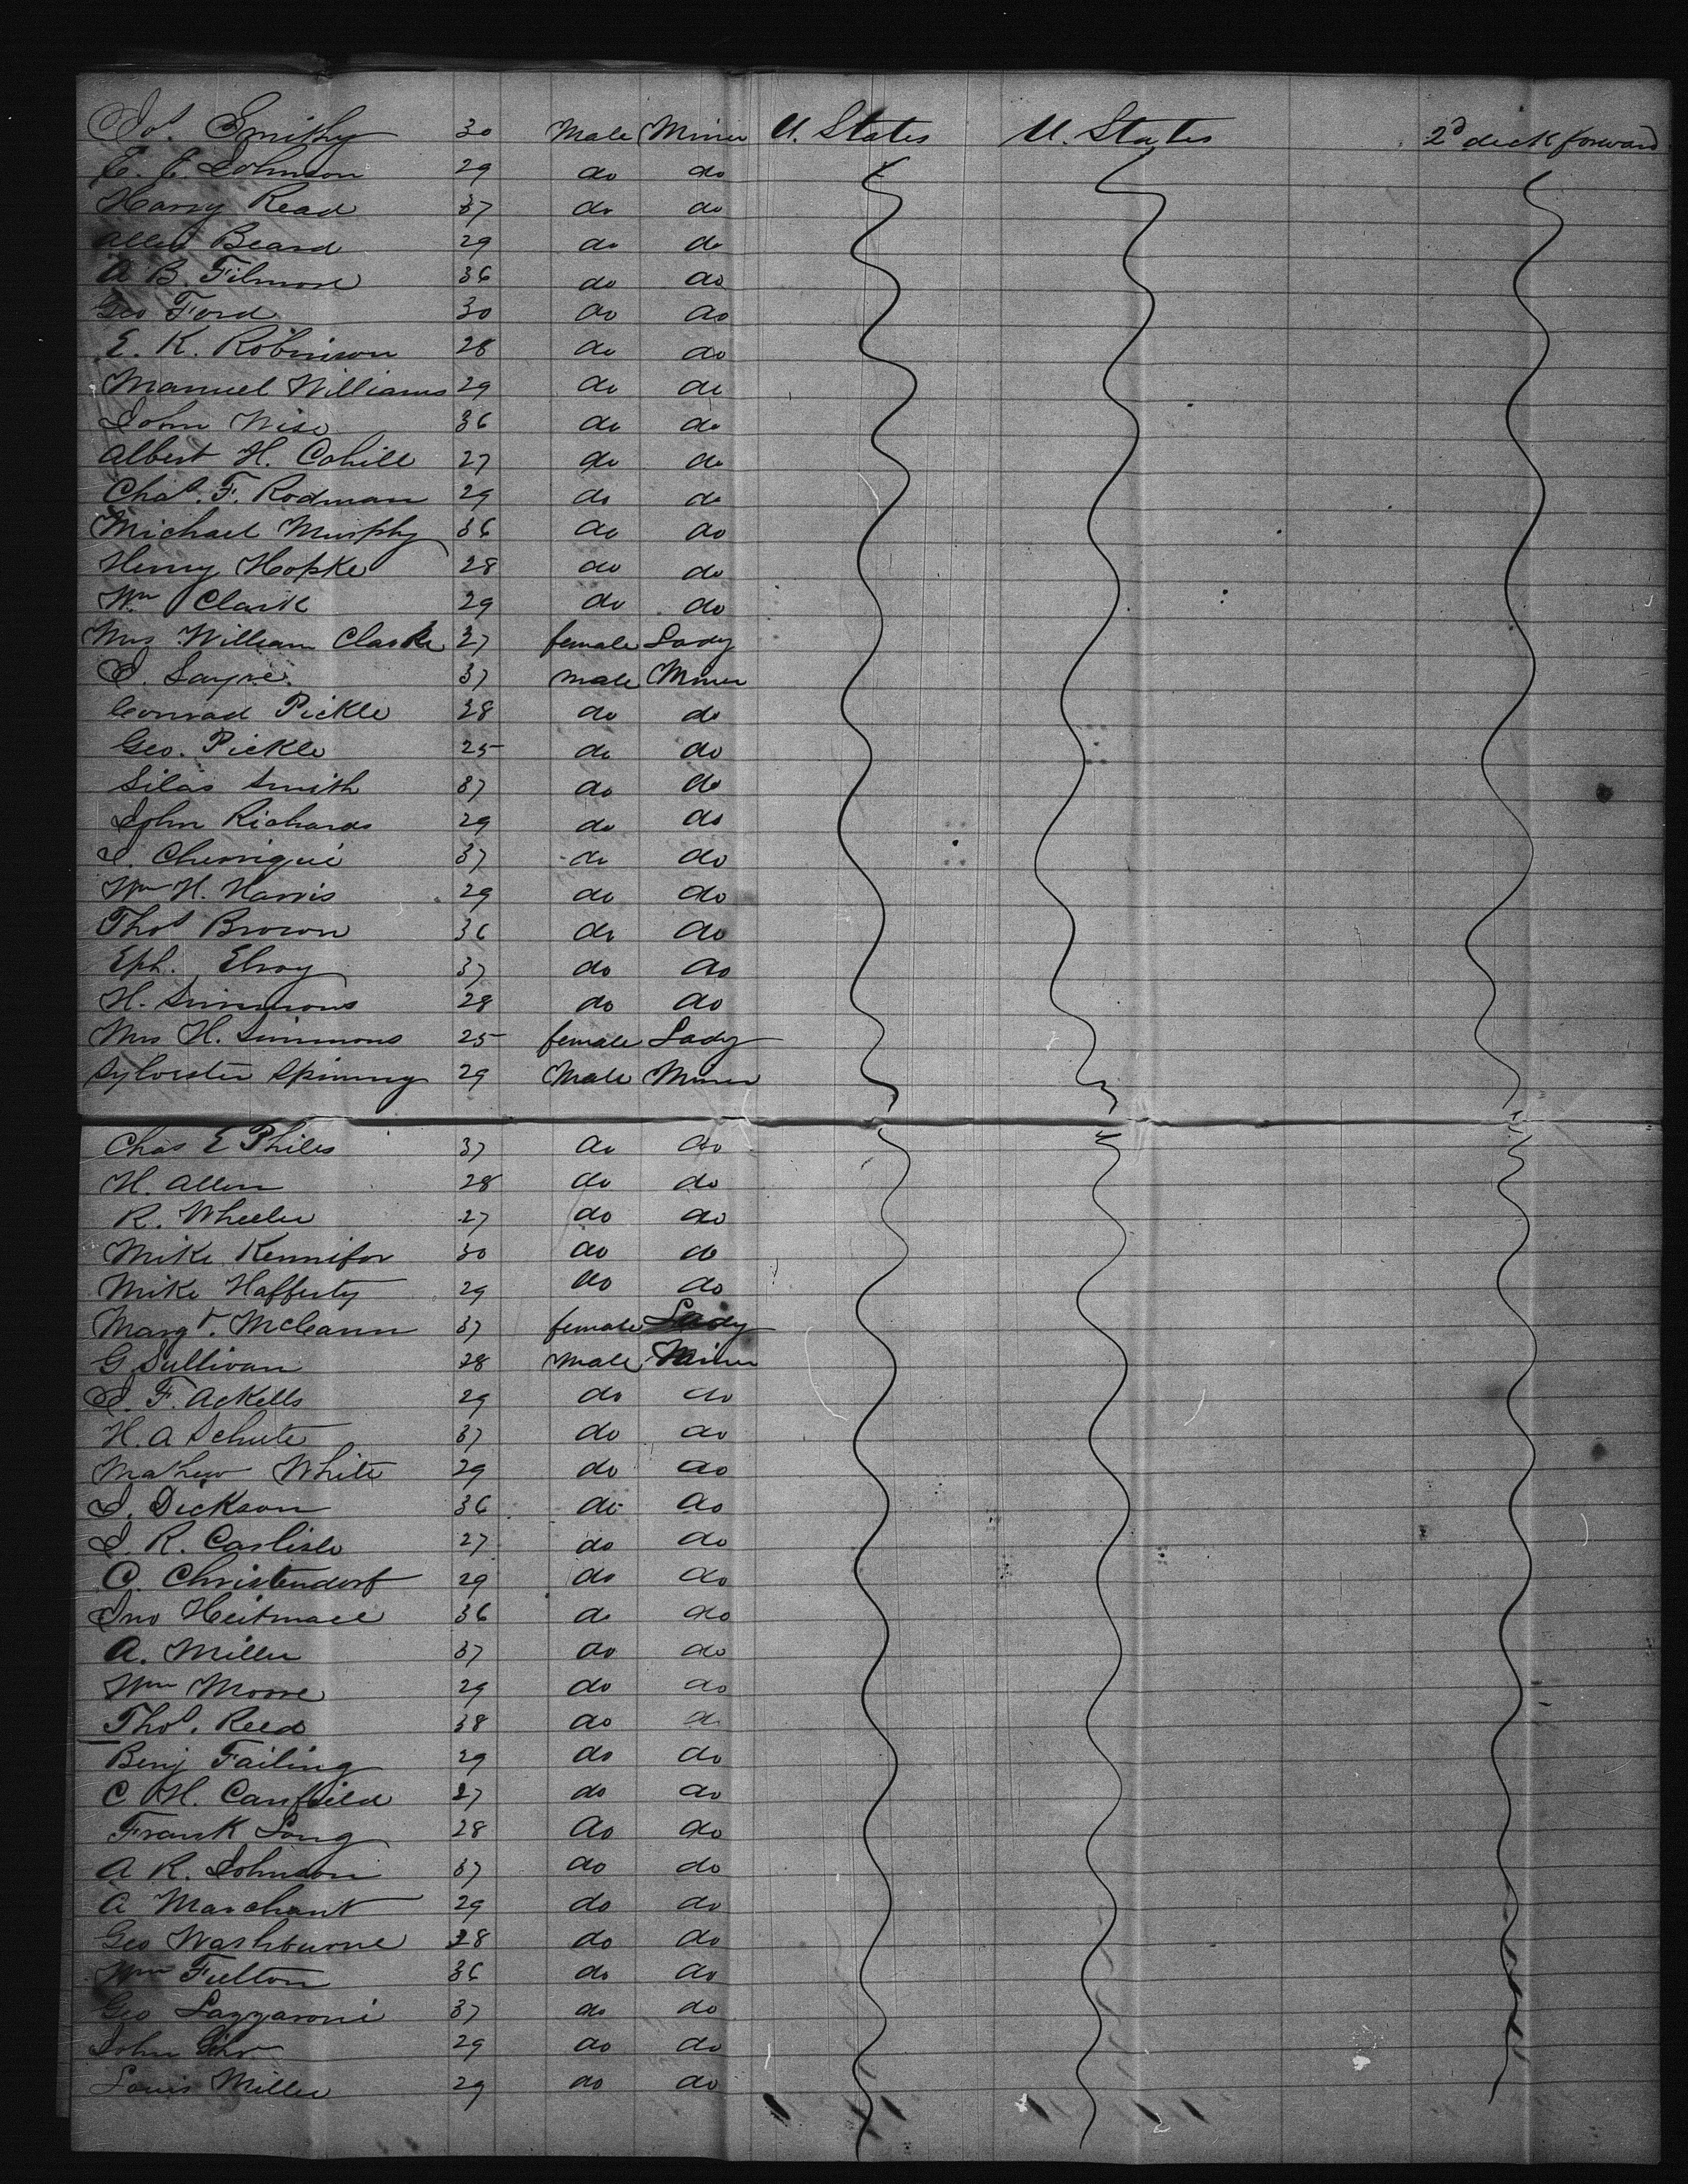 Jos. Smithy 30 Male Miner U. States U. States 2d deck forward
E. E. Johnson 29 do do
Harry Read 37 do do
Allen Beard 29 do do
A B. Filmore 36 do do
Geo Ford 30 do do
E. K. Robinson 28 do do
Manuel Williams 29 do do
John Wise 36 do do
Albert H. Cahill 27 do do
Chas. F. Rodman 29 do do
Michael Murphy 36 do do
Henry Hopke 28 do do
Wm Clark 29 do do
Mrs William Clarke 27 female Lady
J. Sayre 37 male Miner
Conrad Pickle 28 do do
Geo. Pickle 25 do do
Silas Smith 37 do do
John Richards 29 do do
37 do do
Wm H. Harris 29 do do
Thos Brown 36 do do
Eph. Elroy 37 do do
H. Simmons 28 do do
Mrs H. Simmons 25 female Lady
Sylvester Spinny 29 Male Miner
Chas E Philes 37 do do
H. Allen 28 do do
R. Wheeler 27 do do
Mike Kennifor 30 do do
Mike Hafferty 29 do do
Margt. McCann 37 female Lady
G Sullivan 28 Male Miner
J. F. Ackells 29 do do
H. A Schute 37 do do
Mathew White 29 do do
J. Dickson 36 do do
J. R. Carlisle 27 do do
C. Christendorf 29 do do
Jno 36 do do
A. Miller 37 do do
Wm Moore 29 do do
Thos. Reed 38 do do
Benj Failing 29 do do
C H. Canfield 27 do do
Frank Long 28 do do
A R. Johnson 37 do do
A Marchant 29 do do
Geo Washburne 28 do do
Wm Fulton 36 do do
Geo Lazzaroni 37 do do
John 29 do do
Louis Miller 29 do do